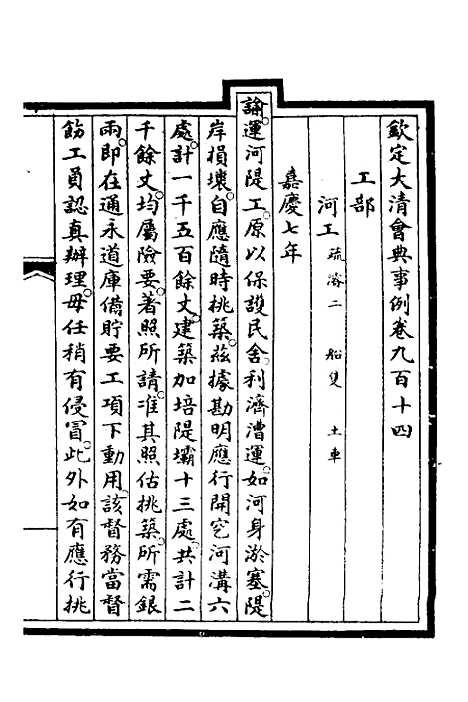 欽定大清會典事例卷九百十四
工部
河工 疏濬二 船隻 土車
嘉慶七年
諭運河隄工。原以保護民舍。利濟漕運。如河身淤塞。隄
岸損壞。自應隨時挑築。茲據勘明應行開空河溝六
處。計一千五百餘丈。建築加培隄壩十三處。共計二
千餘丈。均屬險要。著照所請。准其照估挑築。所需銀
兩。即在通永道庫備貯要工項下動用。該督務當督
飭工員認真辦理。毋任稍有侵冒。此外如有應行挑